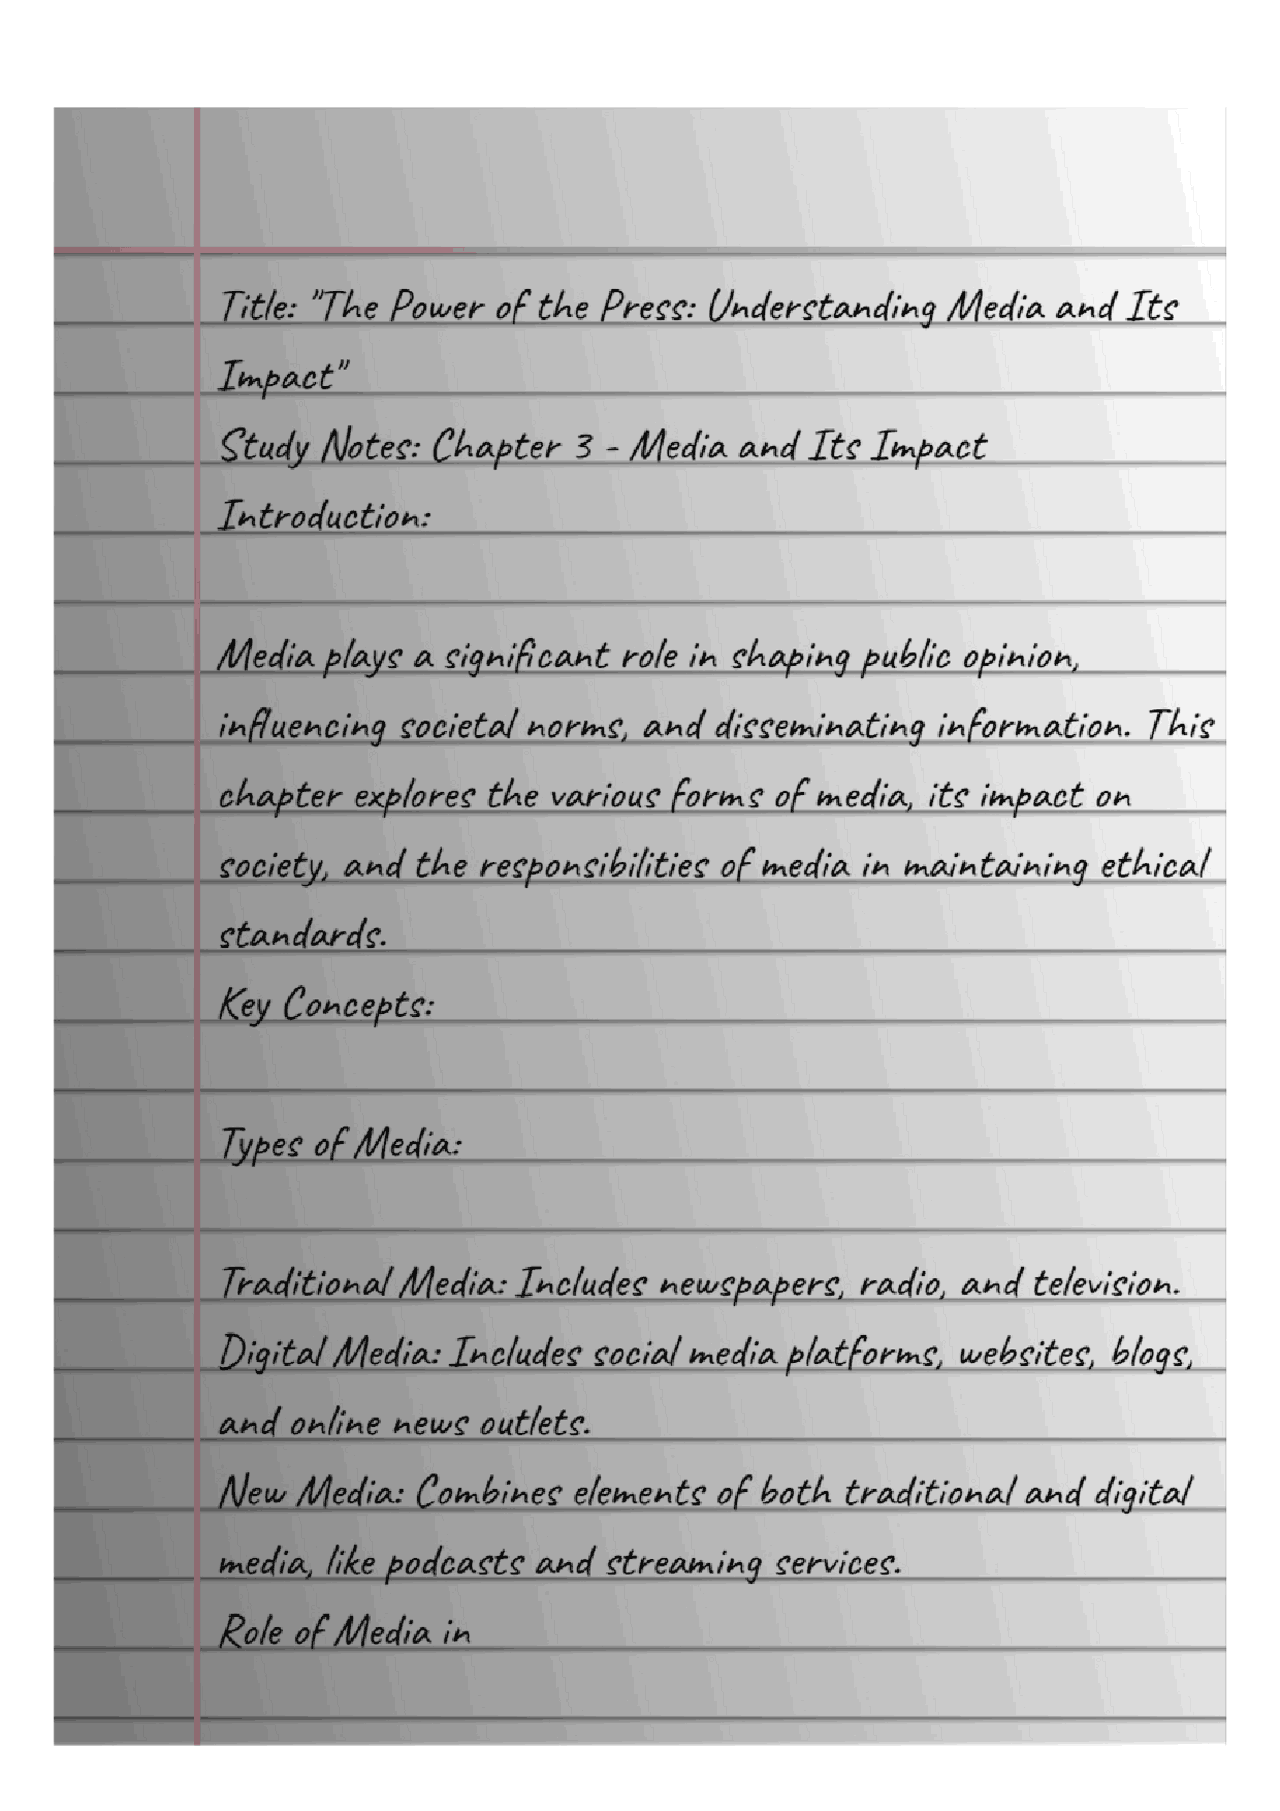 Title: "The Power of the Press: Understanding Media and Its
Impact"
Study Notes: Chapter 3 - Media and Its Impact
Introduction:
Media plays a significant role in shaping public opinion,
influencing societal norms, and disseminating information. This
chapter explores the various forms of media, its impact on
society, and the responsibilities of media in maintaining ethical
standards.
Key Concepts:
Types of Media:
Traditional Media: Includes newspapers, radio, and television.
Digital Media: Includes social media platforms, websites, blogs,
and online news outlets.
New Media: Combines elements of both traditional and digital
media, like podcasts and streaming services.
Role of Media in